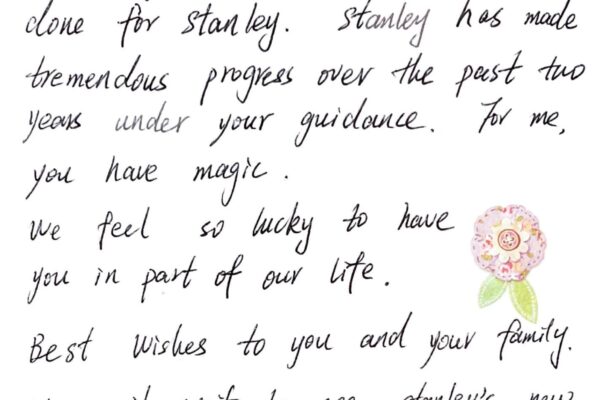 done for Stanley. Stanley has made
tremendous progress over the past two
years under your guidance. For me,
you have magic.
We feel so lucky to have
you in part of our life.
Best wishes to you and your family.
stanley's new